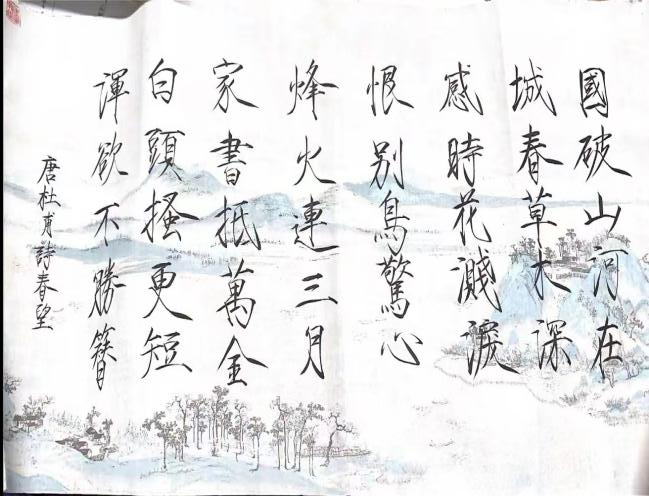 國破山河在
城春草木深
感時花濺淚
恨別鳥驚心
烽火連三月
家書抵萬金
白頭搔更短
渾欲不勝簪
唐杜甫詩春望